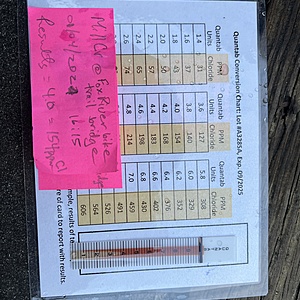 Quantab Conversion Chart Lot #A3285A, Exp. 09/2025
Quantab Units PPM Chloride
1.4 31
1.6 37
1.8 43
2.0 50
2.2 57
2.4 65
2.6 74
Quantab Units PPM Chloride
3.6 127
3.8 140
4.0 154
4.2 168
4.4 183
4.6 198
4.8 214
Quantab Units PPM Chloride
5.8 308
6.0 329
6.2 352
6.4 376
6.6 402
6.8 430
7.0 459
491
526
564
606
Mill Ck @
Fox River bike
trail bridge
01/04/2024 16:15
Results = 4.0 = 154ppm Cl
mple, results of te
re of card to report with results.